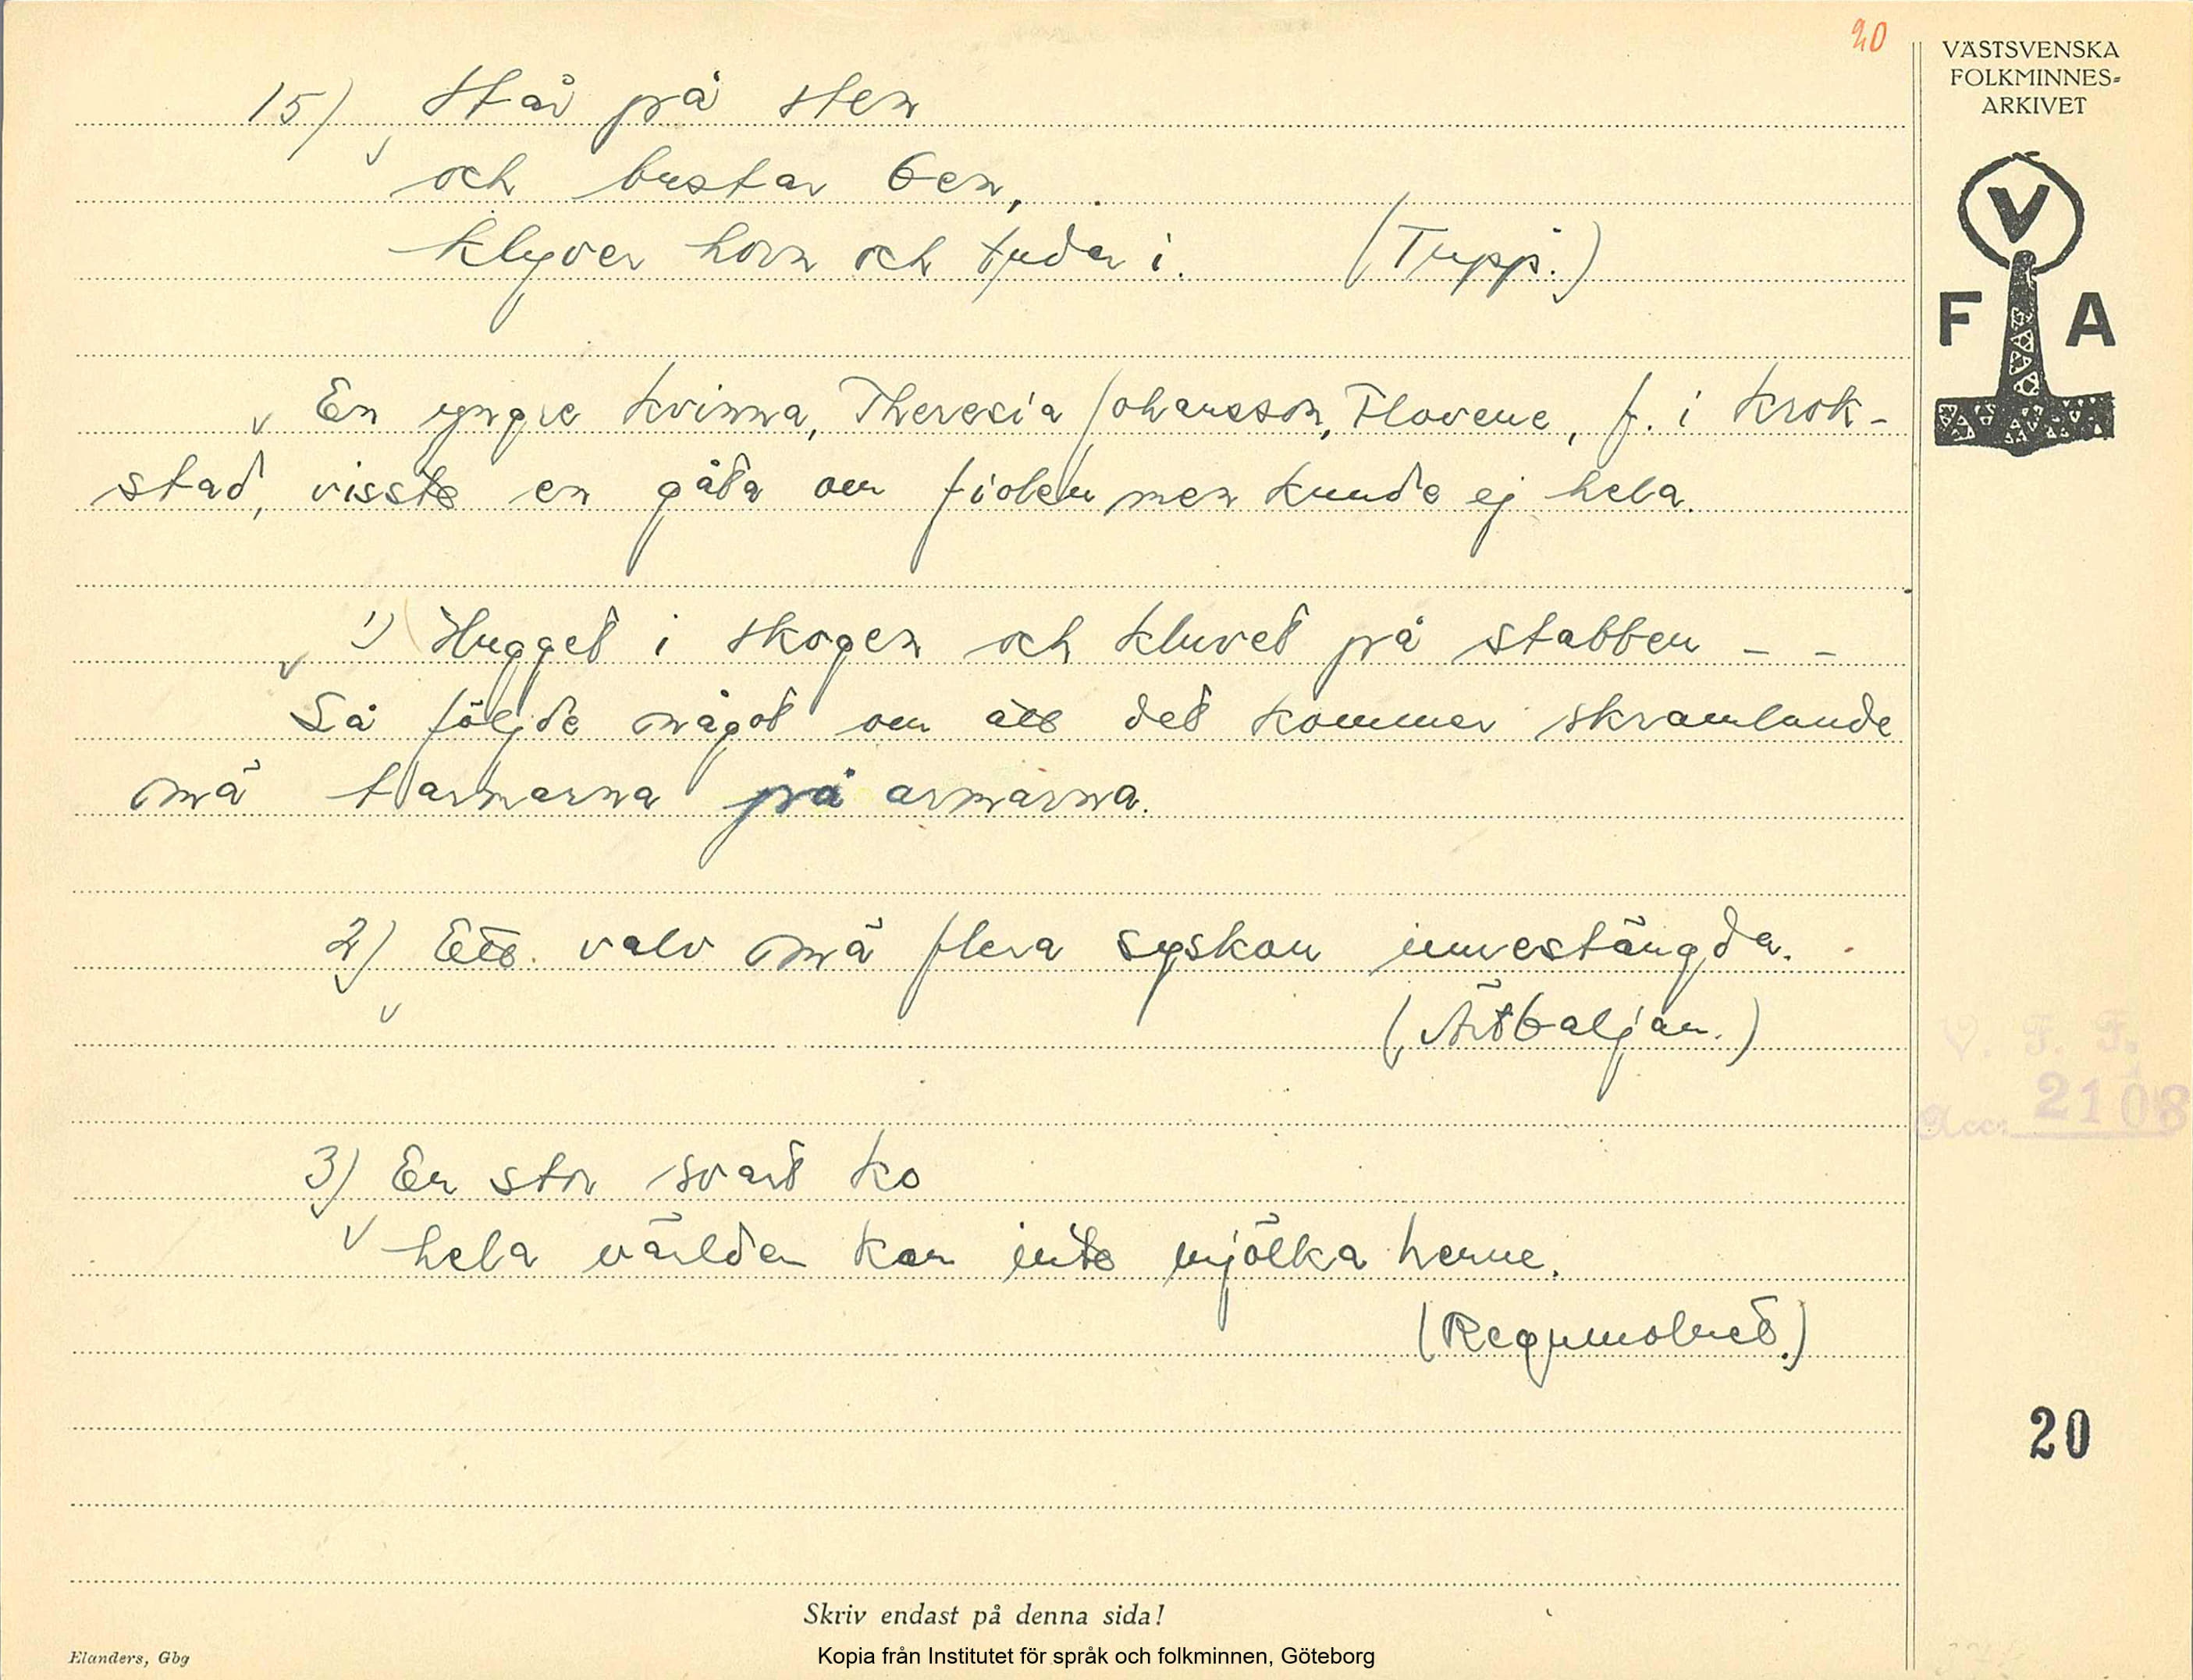 20
VÄSTSVENSKA
FOLKMINNES-
ARKIVET
V
F A
15) Står på sten
och bustar ben,
klyver horn och tudar i. (Tupp.)
En yngre kvinna, Theresia Johansson, Flovene, f. i Krok-
stad, visste en gåta om fiolen men kunde ej hela.
1) Hugget i skogen och kluvet på stabben - -
Så följde något om att det kommer skramlande
mä tarmarna på armarna.
2) Ett valv mä flera syskon innestängda.
(Ärtbaljan.)
V. F. F.
Acc. 2108
3) En stor svart ko
hela världen kan inte mjölka henne.
(Regnmolnet.)
20
Skriv endast på denna sida!
Elanders, Gbg
Kopia från Institutet för språk och folkminnen, Göteborg